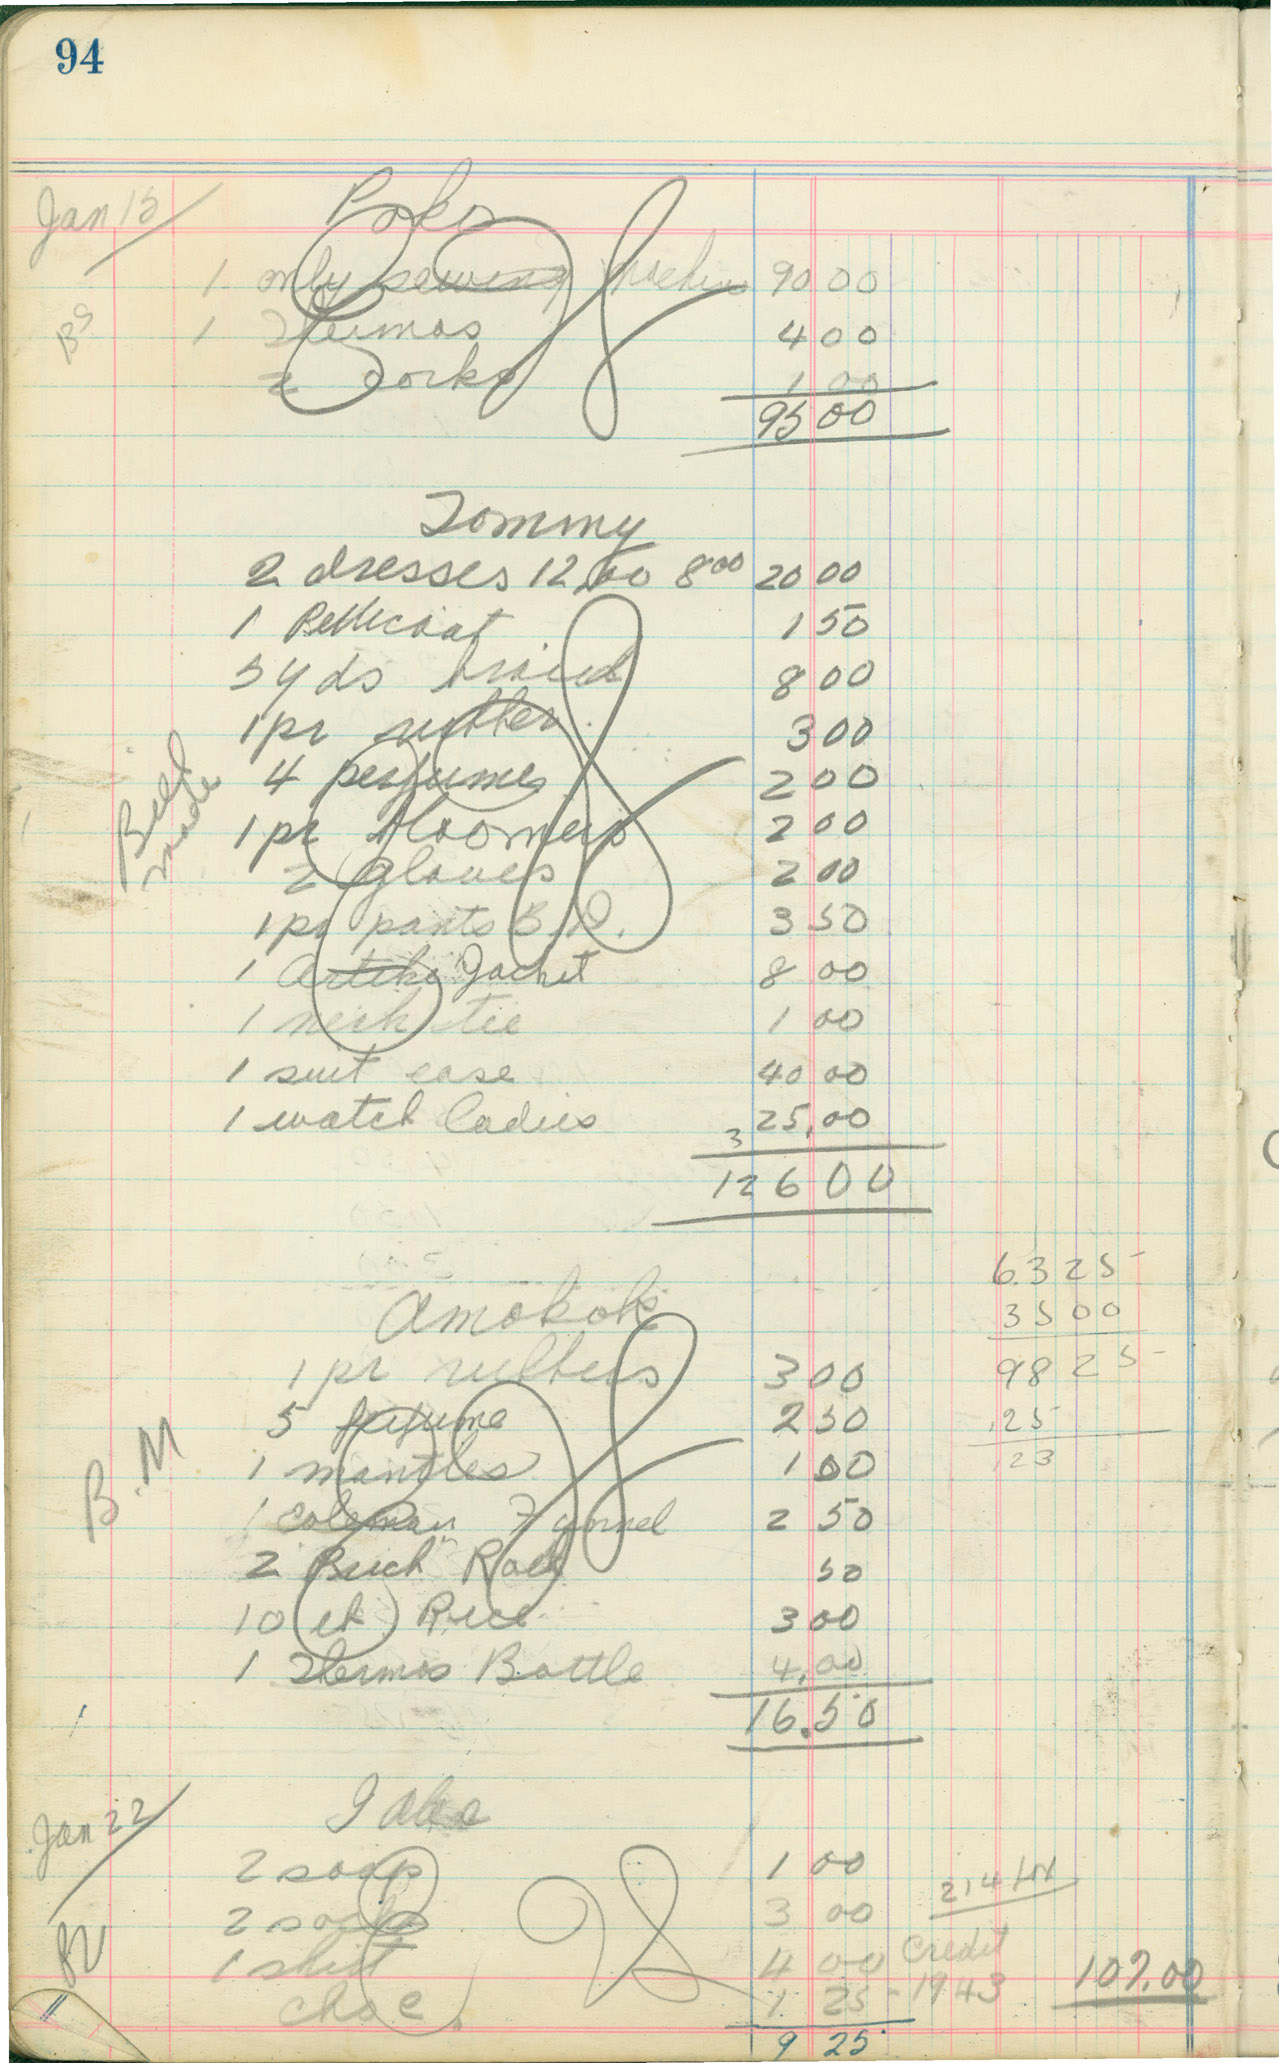 94
Jan 15
Poko
1 only sewing machine 90 00
BS
1 Thermos 4 00
2 corks 1 00
95 00
Tommy
2 dresses 12.00 8 00 20 00
1 Petticoat 1 50
5 yds braid 8 00
1 pr rubber 3 00
4 perfumes 2 00
1 pr bloomers 2 00
2 gloves 2 00
1 pr pants B.D. 3 50
1 Artiko Jacket 8 00
1 neck tie 1 00
1 suit case 40 00
1 watch ladies 25.00
3
126 00
Bill
made
63 25
35 00
98 25
.25
123
Amokok
1 pr rubbers 3 00
5 perfume 2 50
1 mantles 1 00
B.M
1 Coleman 2 50
2 50
10 Rice 3 00
1 Thermos Bottle 4.00
16.50
Jan 22
2 soap 1 00
214
2 socks 3 00
1 shirt 4 00 Credit
choc. 1 25 1943 107.00
9 25